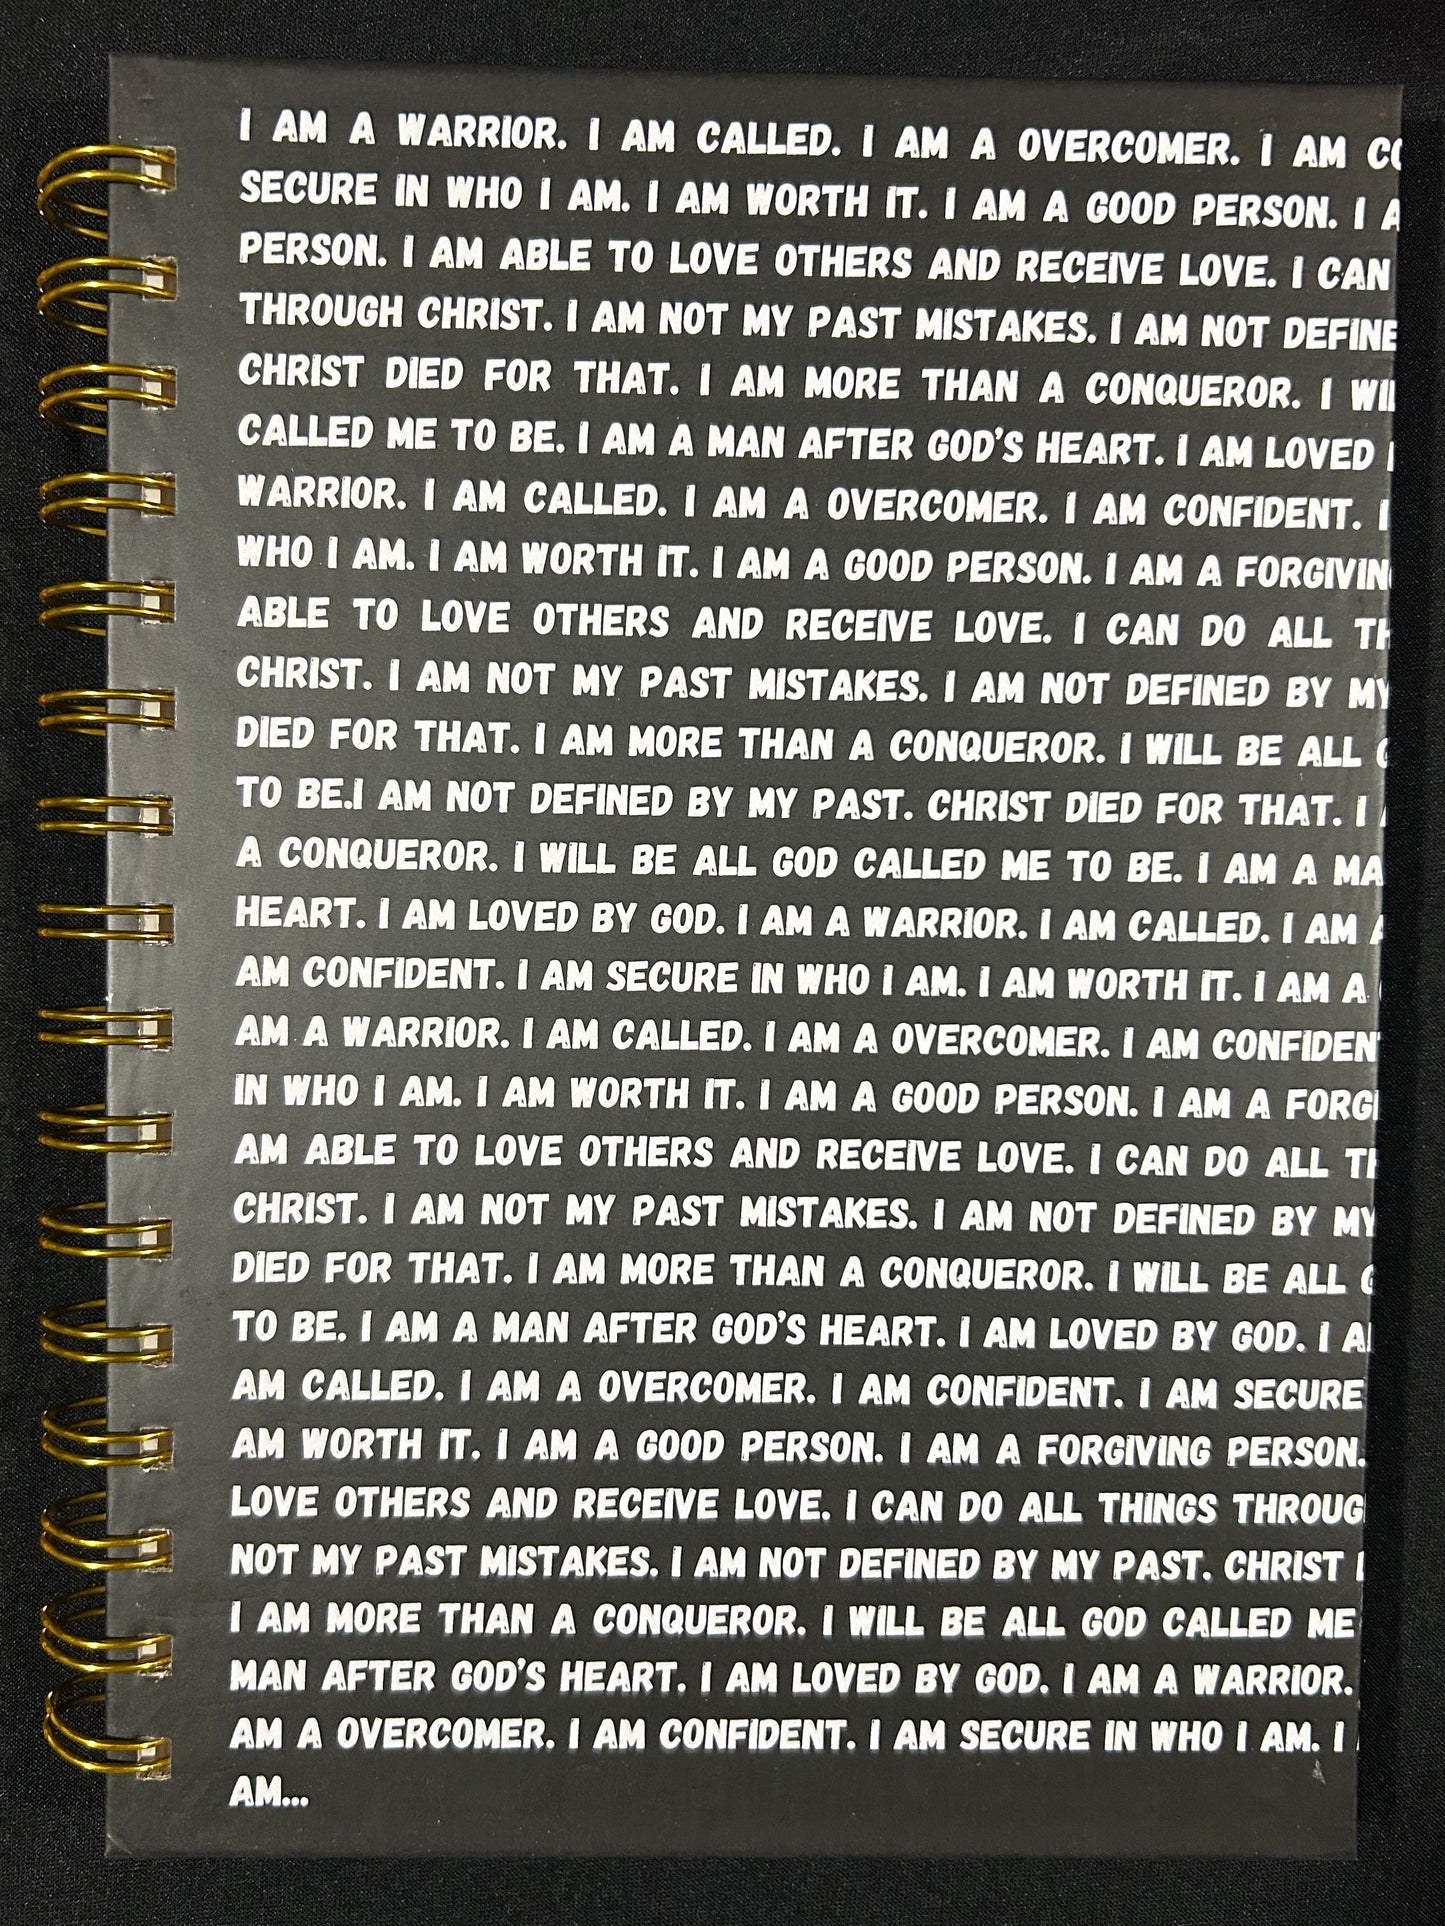 I AM A WARRIOR. I AM CALLED. I AM A OVERCOMER. I AM
SECURE IN WHO I AM. I AM WORTH IT. I AM A GOOD PERSON. I
PERSON. I AM ABLE TO LOVE OTHERS AND RECEIVE LOVE. I CAN
THROUGH CHRIST. I AM NOT MY PAST MISTAKES. I AM NOT DEFINE
CHRIST DIED FOR THAT. I AM MORE THAN A CONQUEROR. I
CALLED ME TO BE. I AM A MAN AFTER GOD'S HEART. I AM LOVED
WARRIOR. I AM CALLED. I AM A OVERCOMER. I AM CONFIDENT. I
WHO I AM. I AM WORTH IT. I AM A GOOD PERSON. I AM A FORGIVIN
ABLE TO LOVE OTHERS AND RECEIVE LOVE. I CAN DO ALL
CHRIST. I AM NOT MY PAST MISTAKES. I AM NOT DEFINED BY MY
DIED FOR THAT. I AM MORE THAN A CONQUEROR. I WILL BE ALL
TO BE.I AM NOT DEFINED BY MY PAST. CHRIST DIED FOR THAT. I
A CONQUEROR. I WILL BE ALL GOD CALLED ME TO BE. I AM A MA
HEART. I AM LOVED BY GOD. I AM A WARRIOR. I AM CALLED. I AM
AM CONFIDENT. I AM SECURE IN WHO I AM. I AM WORTH IT. I AM A
AM A WARRIOR. I AM CALLED. I AM A OVERCOMER. I AM CONFIDEN
IN WHO I AM. I AM WORTH IT. I AM A GOOD PERSON. I AM A FORG
AM ABLE TO LOVE OTHERS AND RECEIVE LOVE. I CAN DO ALL
CHRIST. I AM NOT MY PAST MISTAKES. I AM NOT DEFINED BY MY
DIED FOR THAT. I AM MORE THAN A CONQUEROR. I WILL BE ALL
TO BE. I AM A MAN AFTER GOD'S HEART. I AM LOVED BY GOD. I
AM CALLED. I AM A OVERCOMER. I AM CONFIDENT. I AM SECURE
AM WORTH IT. I AM A GOOD PERSON. I AM A FORGIVING PERSON.
LOVE OTHERS AND RECEIVE LOVE. I CAN DO ALL THINGS THROUG
NOT MY PAST MISTAKES. I AM NOT DEFINED BY MY PAST. CHRIST
I AM MORE THAN A CONQUEROR. I WILL BE ALL GOD CALLED ME
MAN AFTER GOD'S HEART. I AM LOVED BY GOD. I AM A WARRIOR.
AM A OVERCOMER. I AM CONFIDENT. I AM SECURE IN WHO I AM. I
AM...